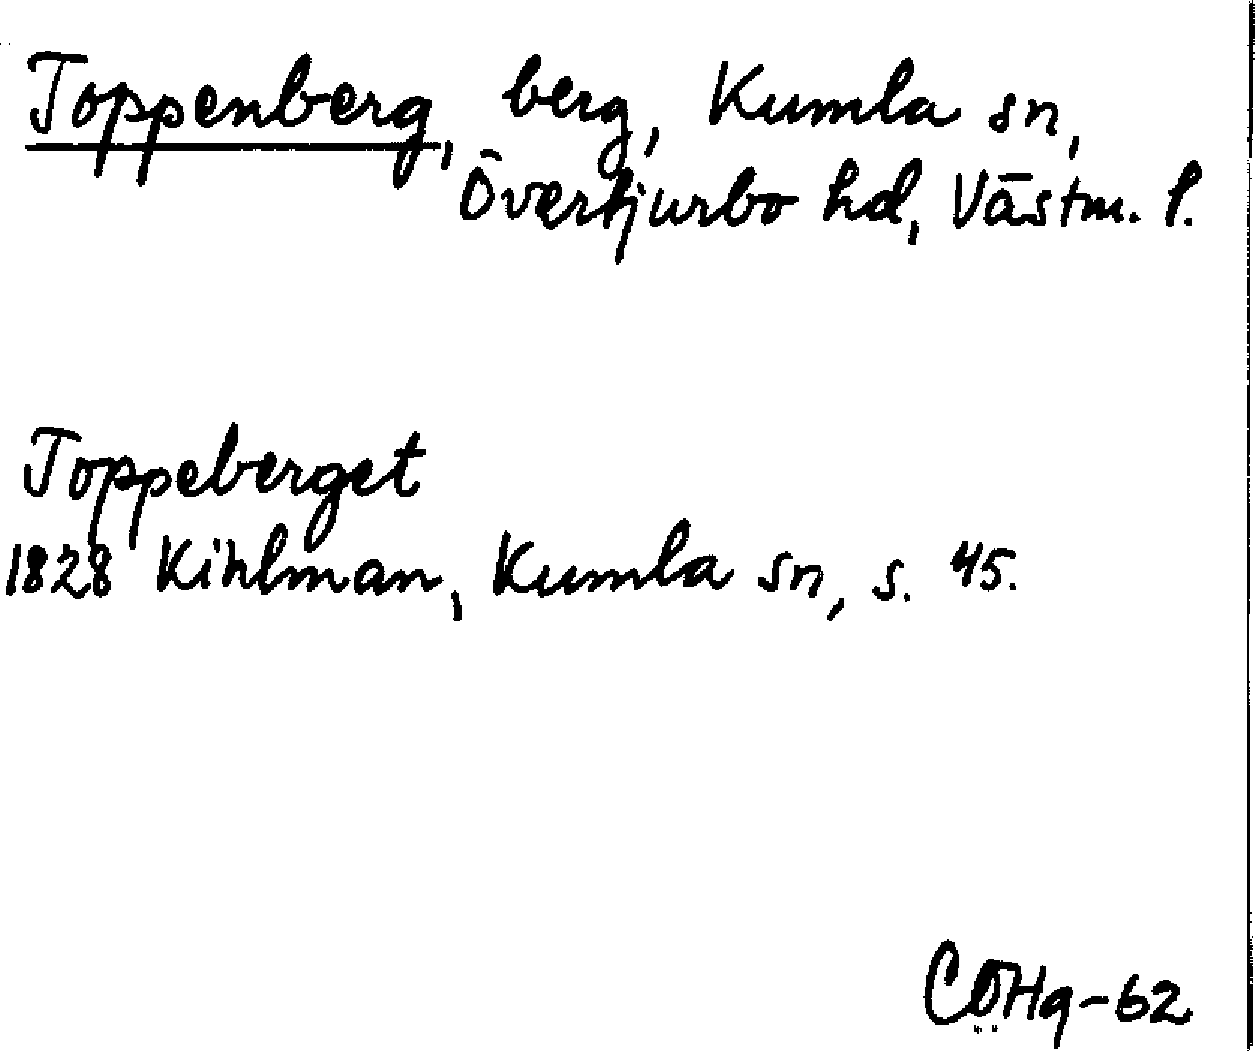 Toppenberg, berg, Kumla sn,
Övertjurbo hd, Västm. l.
Toppeberget
1828 Kihlman, Kumla sn, s. 45.
CÖHg-62